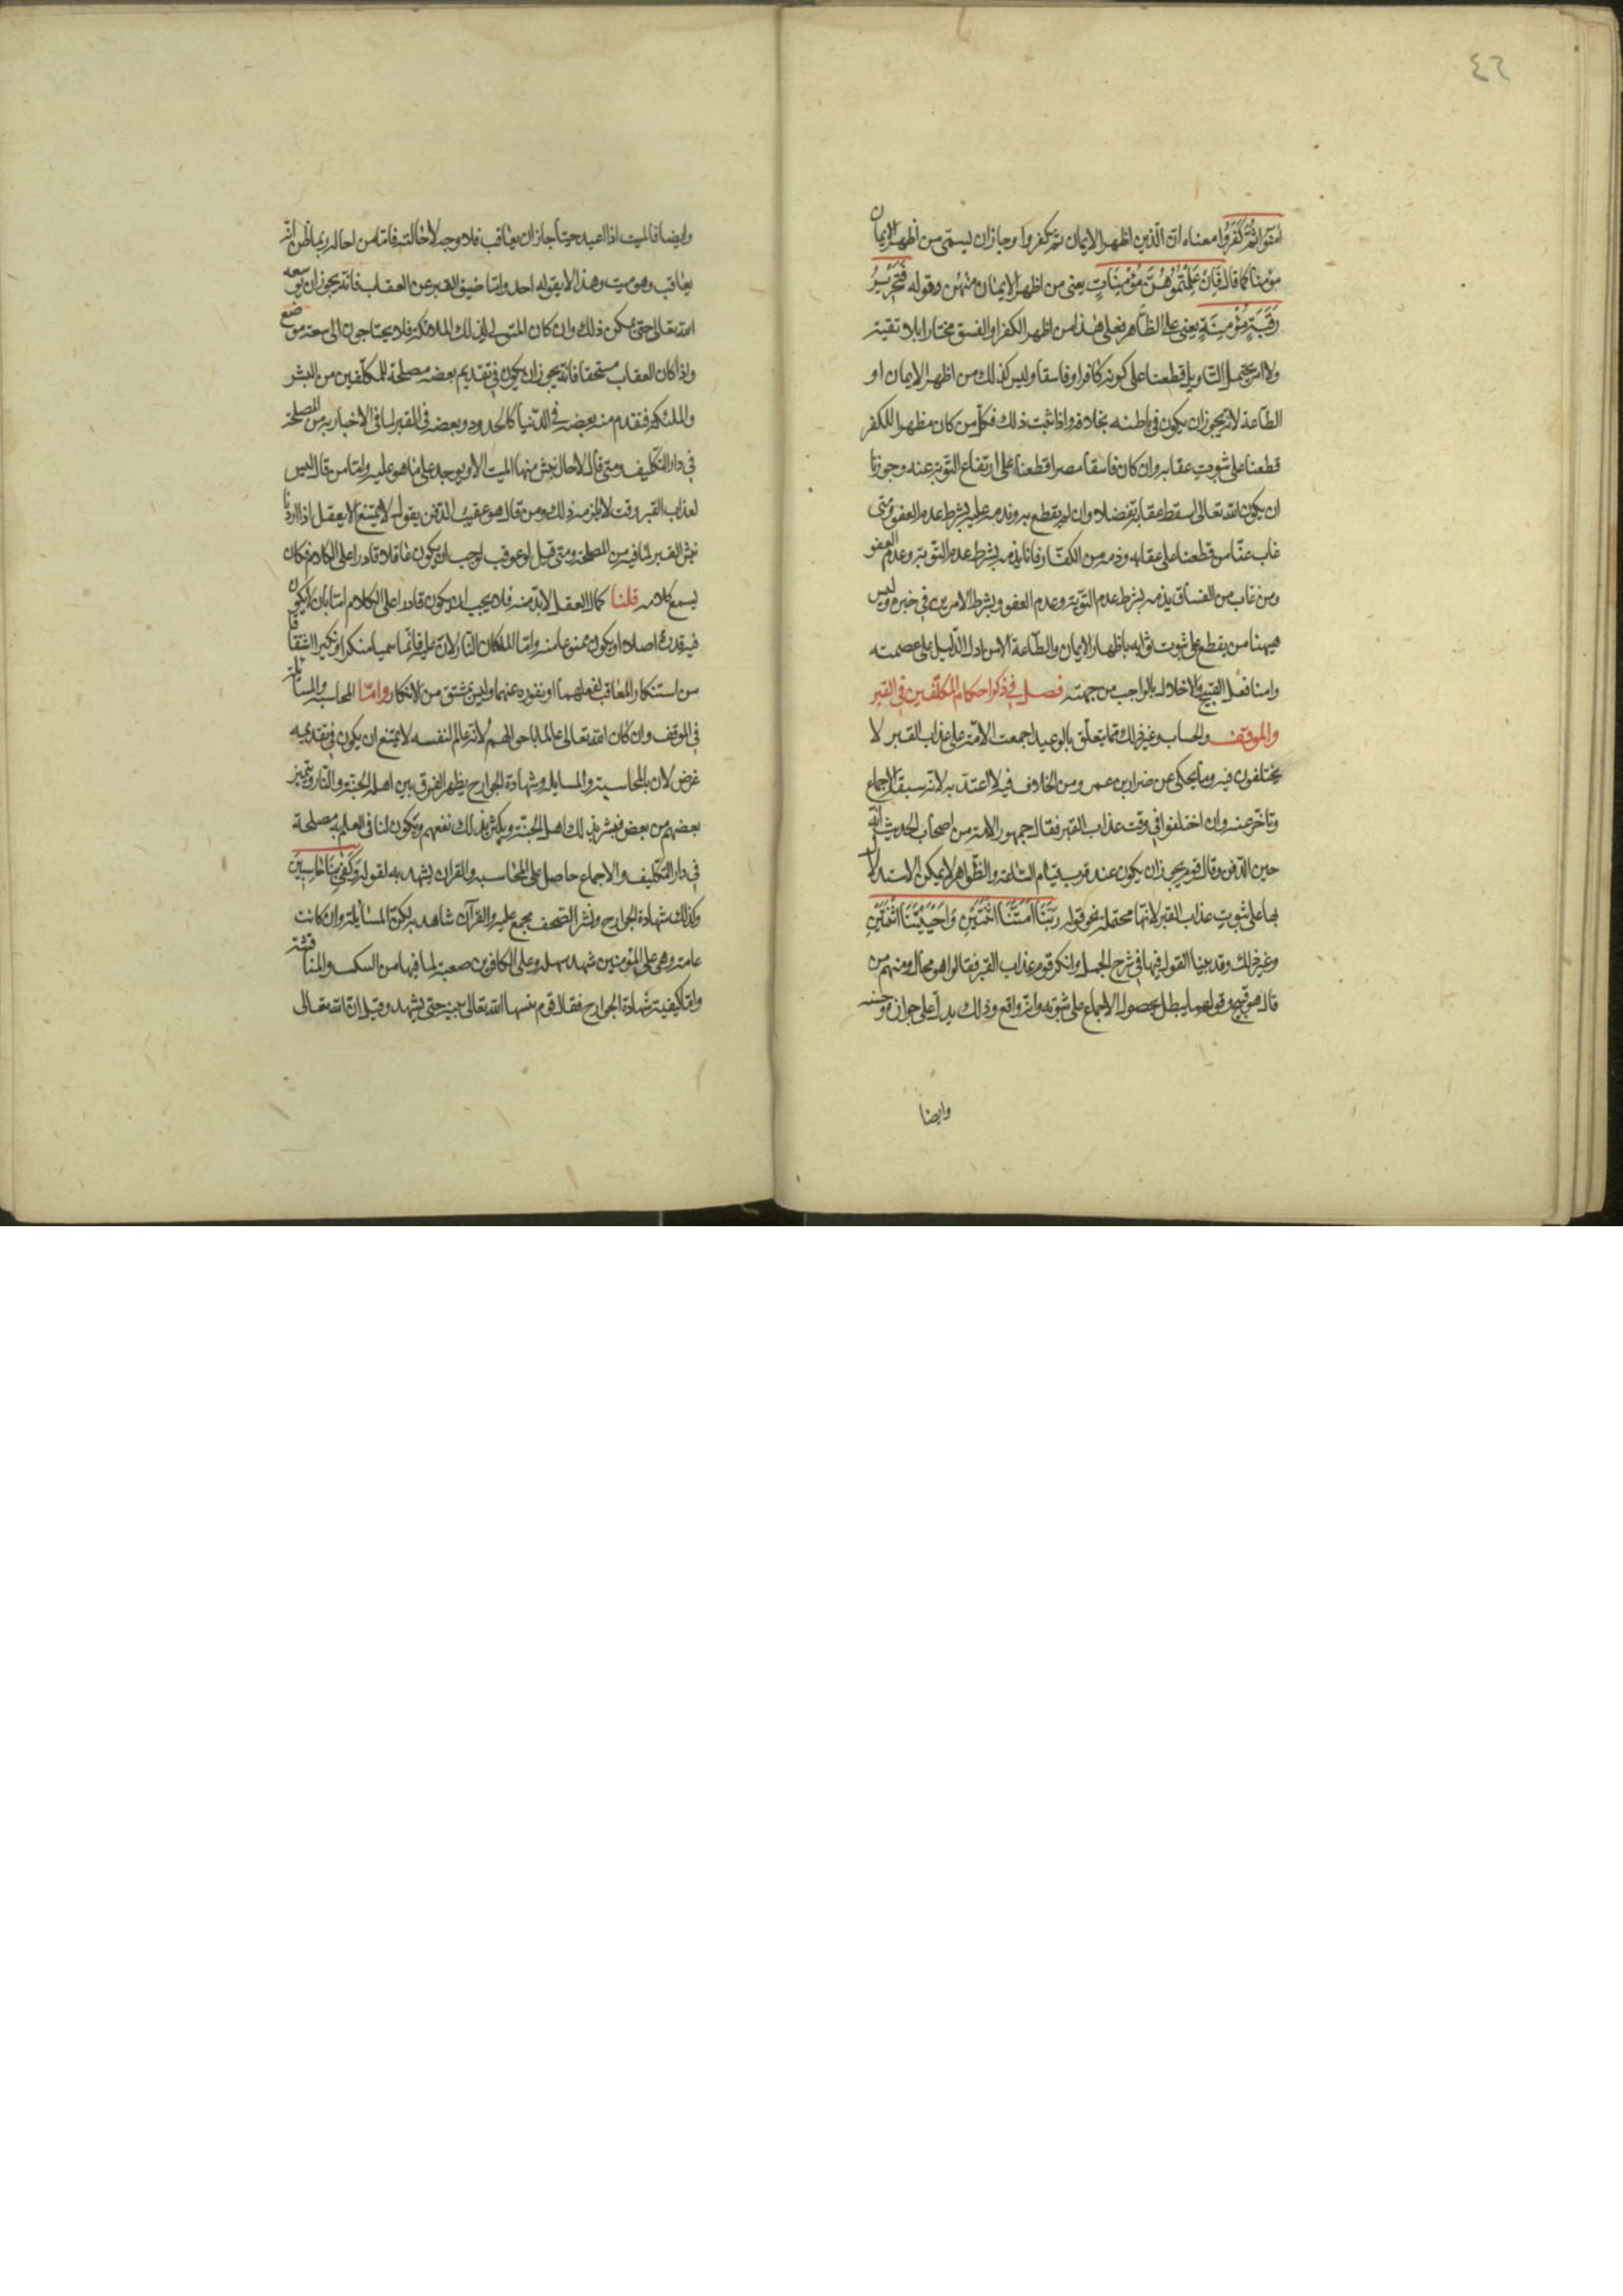 ٤٢
امَنُوا ثُمَّ كَفَرُوا معناه ان الّذين اظهروا الايمان ثم كفروا وجاز ان يسمّى من اظهر الايمان
مؤمنا كما قال فَاِنْ عَلِمْتُمُوهُنَّ مُؤْمِنَاتٍ يعنى من اظهر الايمان منهن وقوله فَتَحْرِيرُ
رَقَبَةٍ مُؤْمِنَةٍ يعنى على الظاهر فعلى هذا من اظهر الكفر او الفسق مختارا بلا تقية
ولا امر يحتمل التاويل قطعنا على كونه كافرا وفاسقا وليس كذلك من اظهر الايمان او
الطّاعة لانه يجوز ان يكون فى باطنه بخلافه واذا ثبت ذلك فكلّ من كان مظهرا للكفر
قطعنا على ثبوت عقابه وان كان فاسقا مصرا قطعنا على ارتفاع التوبة عنه وجوزنا
ان يكون الله تعالى اسقط عقابه تفضلا وان لم يقطع به ونذمه عليه بشرط عدم العفو ومتى
غاب عنّا من قطعنا على عقابه وذمه من الكفّار فانا نذمه بشرط عدم التّوبة وعدم العفو
ومن غاب من الفساق يذمه بشرط عدم التّوبة وعدم العفو وبشرط الامرين فى خبره وليس
هيهنا من يقطع على ثبوت ثوابه باظهار الايمان والطّاعة الا من دل الدّليل على عصمته
وامنا فعل القبيح والاخلال بالواجب من جهته فصل فى ذكر احكام المكلّفين فى القبر
والموقف والحساب وغير ذلك مما يتعلّق بالوعيد اجمعت الامّة على عذاب القبر لا
يختلفون فيه وما يحكى عن ضرار بن عمرو من الخلاف فيه لا اعتد به لانه سبقه الاجماع
وتاخّر عنه وان اختلفوا فى وقت عذاب القبر فقال جمهور الامة من اصحاب الحديث انّه
حين الدّفن وقال قوم يجوز ان يكون عند قرب قيام السّاعة والظّواهر لا يمكن الاستدلال
بها على ثبوت عذاب القبر لانّها محتملة نحو قوله رَبَّنَا اَمَتَّنَا اثْنَتَيْنِ وَاَحْيَيْتَنَا اثْنَتَيْنِ
وغير ذلك وقد بينا القول فيها فى شرح الجمل وانكر قوم عذاب القبر فقالوا هو محال ومنهم من
قال هو قبيح وقولهما يبطل بحصول الاجماع على ثبوته وانّه واقع وذلك يدلّ على جوازه وحسنه
وايضا
وايضا فالميت اذا اعيد حيّا جاز ان يعاقب فلا وجه لاحالته فامّا من احاله ربما ظنّ انّه
يعاقب وهو ميت وهذا لا يقوله احد وامّا ضيق القبر عن العقاب فانّه يجوز ان يوسعه
الله تعالى حتى يمكن ذلك وان كان المتولى لذلك الملائكة فلا يحتاجون الى سعة موضع
واذا كان العقاب مستحقا فانّه يجوز ان يكون فى تقديم بعضه مصلحة للمكلّفين من البشر
والملئكة فتقدم منه بعضه فى الدّنيا كالحدود وبعضه فى القبر لما فى الاخبار به من المصلحة
فى دار التّكليف ومتى قال لا حال نبش منها الميت الا ويوجد على ما هو عليه وامّا من قال ليس
لعذاب القبر وقت لا يلزمه ذلك ومن قال هو عقيب الدّفن يقول لا يمتنع الا يعقل اذا اردنا
نبش القبر لما فيه من المصلحة ومتى قيل لو عوقب لوجب ان يكون عاقلا قادرا على الكلام فكان
يسمع كلامه قلنا كمال العقل لا بدّ منه فلا يجب ان يكون قادرا على الكلام امّا بان لا يكون
فيه قدرة اصلا او يكون ممنوعا منه وامّا الملكان النّازلان عليه فانّما سميا منكرا ونكيرا اشتقاقا
من استنكار المعاقب لفعلهما او نفوره عنهما وليس بمشتق من الانكار وامّا المحاسبة والمسائلة
فى الموقف وان كان الله تعالى عالما باحوالهم لانّه عالم لنفسه لا يمتنع ان يكون فى تقديمه
غرض لان بالمحاسبة والمسايل وشهادة الجوارح يظهر الفرق بين اهل الجنّة والنّار ويتميز
بعضهم من بعض فيسر بذلك اهل الجنّة ويكثر بذلك نفعهم ويكون لنا فى العلم به مصلحة
فى دار التّكليف والاجماع حاصل على المحاسبة والقران يشهد به لقوله وَكَفىٰ بِنَا حَاسِبِينَ
وكذلك شهادة الجوارح ونشر الصّحف مجمع عليه والقرآن شاهد به لكنّ المسائلة وان كانت
عامة وهى على المؤمنين سهلة وعلى الكافرين صعبة لما فيها من السكب والمناقشة
وامّا كيفية شهادة الجوارح فقال قوم بنيها الله تعالى بنية حتى يشهد وقيل انّ الله تعالى